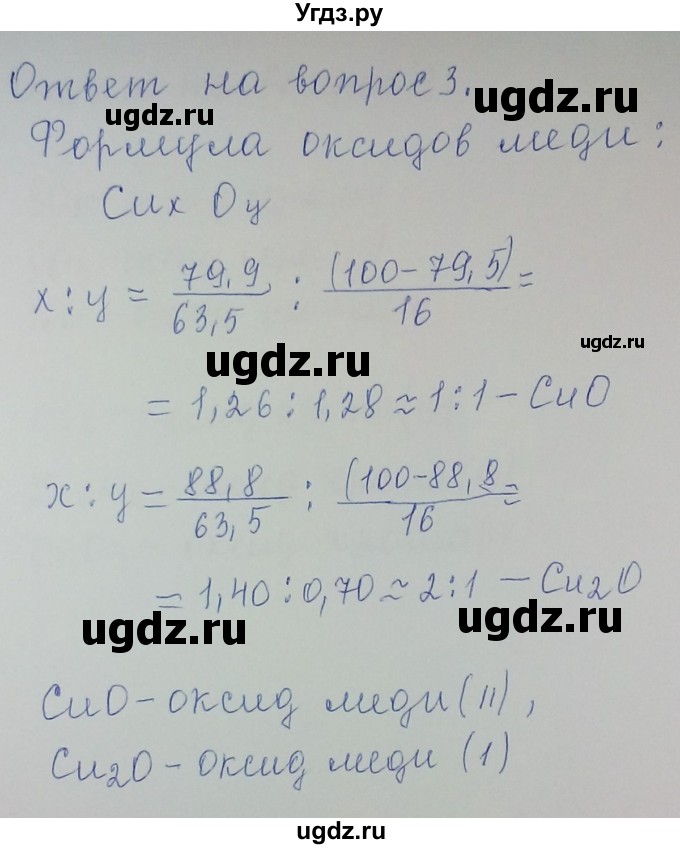 Угдз.ру
Ответ на вопрос 3.
ugdz.ru ugdz.ru
Формула оксидов меди:
CuxOy
x : y = 79,9/63,5 : (100-79,5)/16 =
ugdz.ru ugdz.ru
= 1,26 : 1,28 ≈ 1:1 - CuO
x : y = 88,8/63,5 : (100-88,8/16 =
= 1,40 : 0,70 ≈ 2:1 - Cu2O
ugdz.ru ugdz.ru
CuO - оксид меди (II),
Cu2O - оксид меди (I)
ugdz.ru ugdz.ru
ugdz.ru